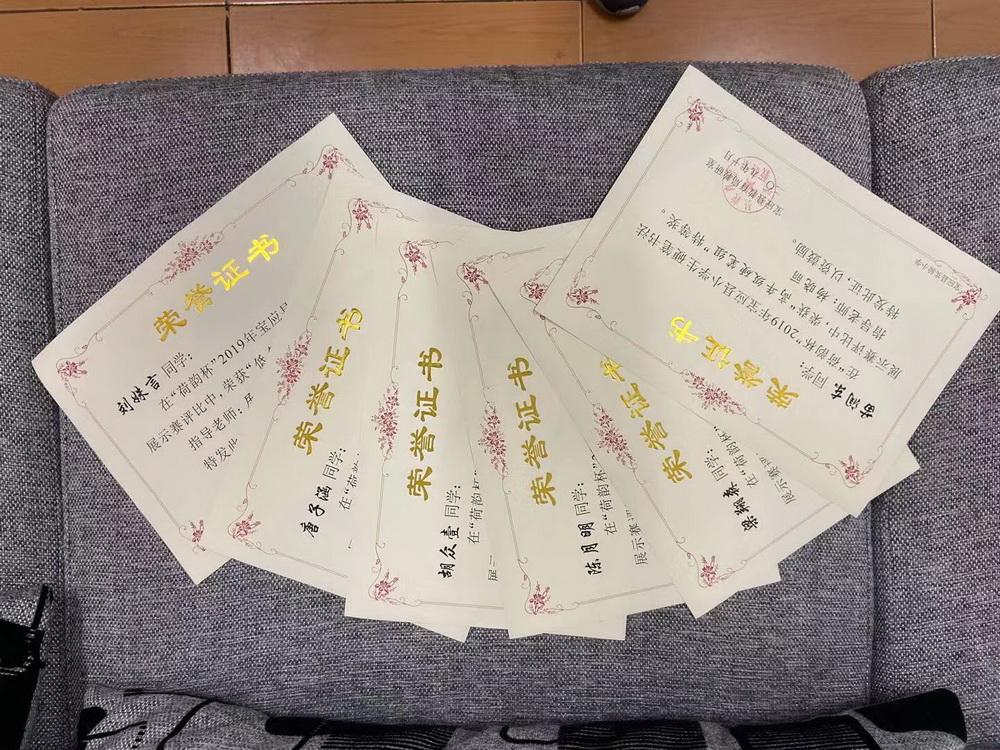 荣誉证书
刘姝言 同学:
在“荷韵杯”2019年宝应
展示赛评比中,荣获“低
指导老师:
特发
荣誉证书
唐子涵 同学:
在“荷韵
荣誉证书
胡众壹 同学:
在“荷韵杯
展
荣誉证书
陈月明 同学:
在“荷韵杯”
展示赛评
荣誉证书
同学:
在“荷韵杯”
展示赛评
荣誉证书
同学:
在“荷韵杯”2019年宝应县小学生硬笔书法
展示赛评比中,荣获“高年级硬笔组”特等奖。
指导老师:杨晓丽
特发此证,以资鼓励。
宝应县教育局教研室
二〇一九年十月
宝应县实验小学